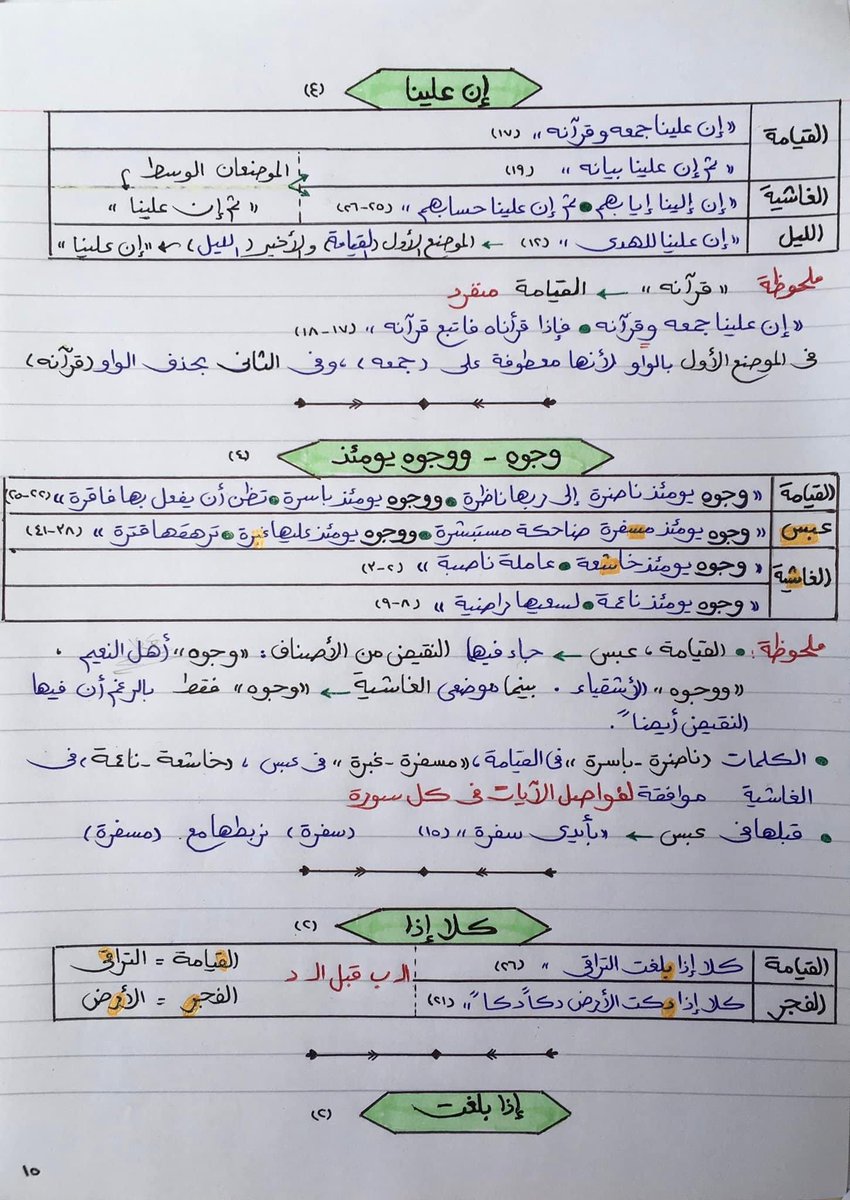 إن علينا (٤)
القيامة «إن علينا جمعه وقرآنه» (١٧)
«ثم إن علينا بيانه» (١٩) الموضعان الوسط
الغاشية «إن إلينا إيابهم • ثم إن علينا حسابهم» (٢٥-٢٦) «ثم إن علينا»
الليل «إن علينا للهدى» (١٢) ← الموضع الأول (القيامة) والأخير (الليل) ← «إن علينا»
ملحوظة «قرآنه» ← القيامة منفرد
«إن علينا جمعه وقرآنه • فإذا قرأناه فاتبع قرآنه» (١٧-١٨)
في الموضع الأول بالواو لأنها معطوفة على (جمعه)، وفى الثانى بحذف الواو (قرآنه)
وجوه - ووجوه يومئذ (٤)
القيامة «وجوه يومئذ ناضرة إلى ربها ناظرة • ووجوه يومئذ باسرة • تظن أن يفعل بها فاقرة» (٢٢-٢٥)
عبس «وجوه يومئذ مسفرة ضاحكة مستبشرة • ووجوه يومئذ عليها غبرة • ترهقها قترة» (٣٨-٤١)
الغاشية «وجوه يومئذ خاشعة • عاملة ناصبة» (٢-٣)
«وجوه يومئذ ناعمة • لسعيها راضية» (٨-٩)
ملحوظة: • القيامة، عبس ← جاء فيها النقيض من الأصناف: «وجوه» أهل النعيم .
«ووجوه» الأشقياء . بينما موضعى الغاشية ← «وجوه» فقط بالرغم أن فيها
النقيض أيضاً.
• الكلمات (ناضرة - باسرة) فى القيامة، «مسفرة - غبرة» فى عبس ، (خاشعة - ناعمة) فى
الغاشية موافقة لفواصل الآيات فى كل سورة
• قبلها فى عبس ← «بأيدى سفرة» (١٥) (سفرة) نربطها مع (مسفرة)
كلا إذا (٢)
القيامة كلا إذا بلغت التراقى » (٢٦) الـ ب قبل الـ د القيامة = التراقى
الفجر كلا إذا دكت الأرض دكاً دكاً » (٢١) الفجر = الأرض
إذا بلغت (٢)
١٥